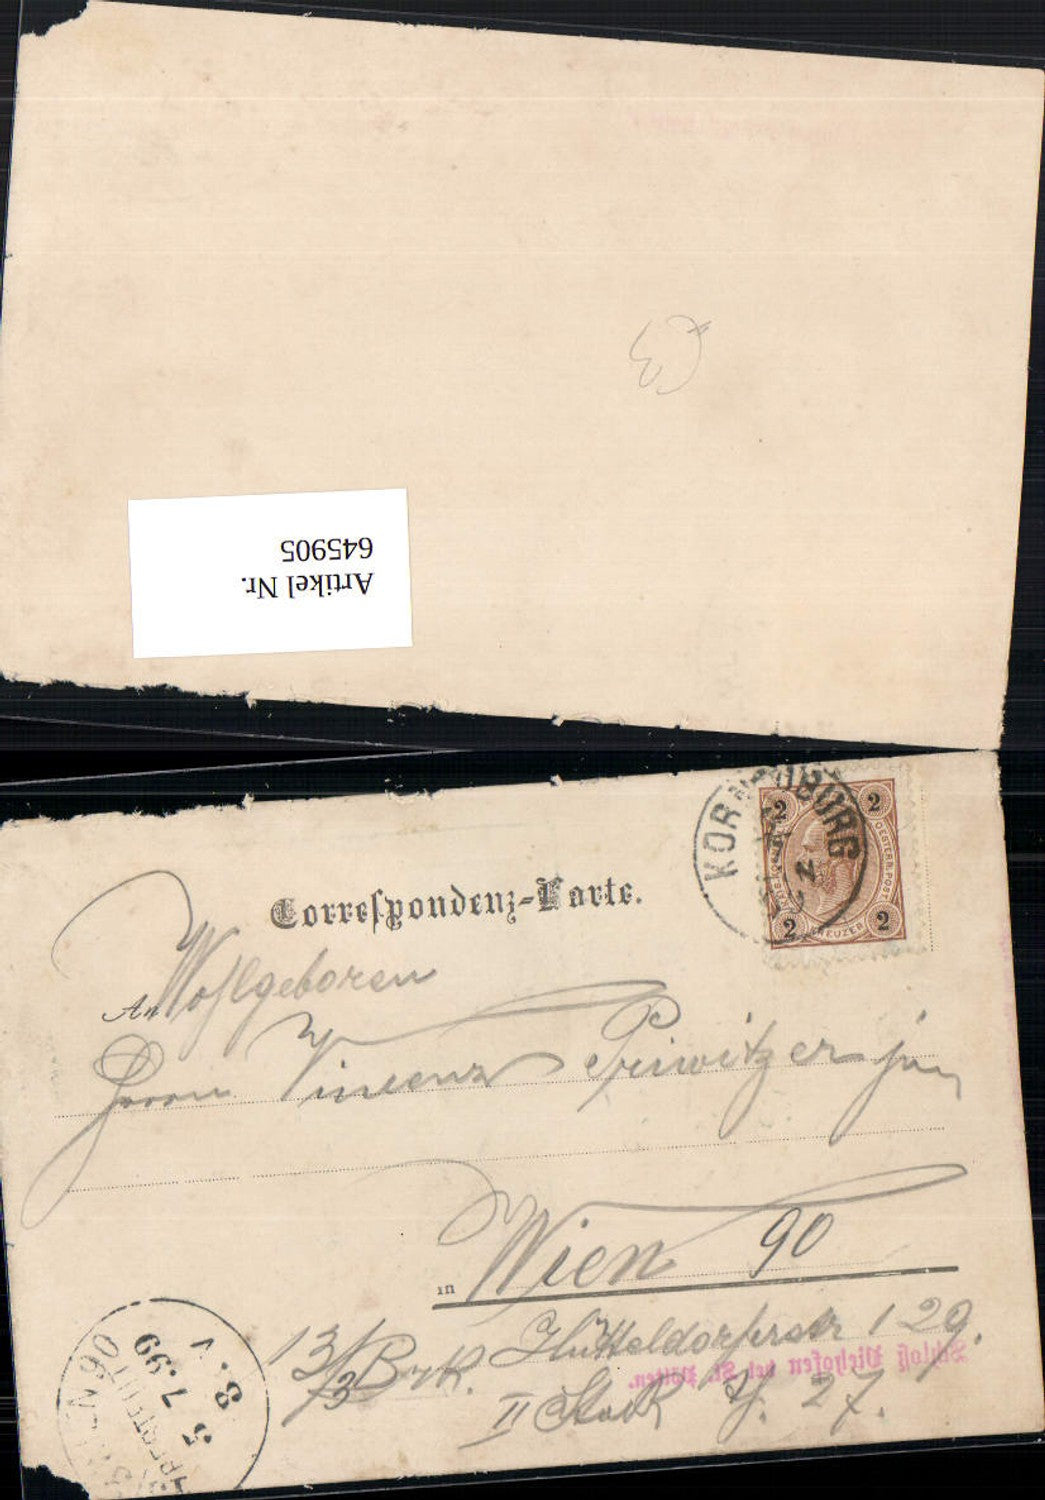 (3
Artikel Nr.
645905
KORNEUBURG
2 2
OESTERR. POST
2 KREUZER 2
Correspondenz-Karte.
An Wohlgeboren
Herrn Vincenz Priwitzer jun
in Wien 90
13/3 Bezk. Hütteldorferstr 129.
II Stock T. 27.
Schloß Viehofen bei St. Pölten.
WIEN 90
8. V
5 7.99